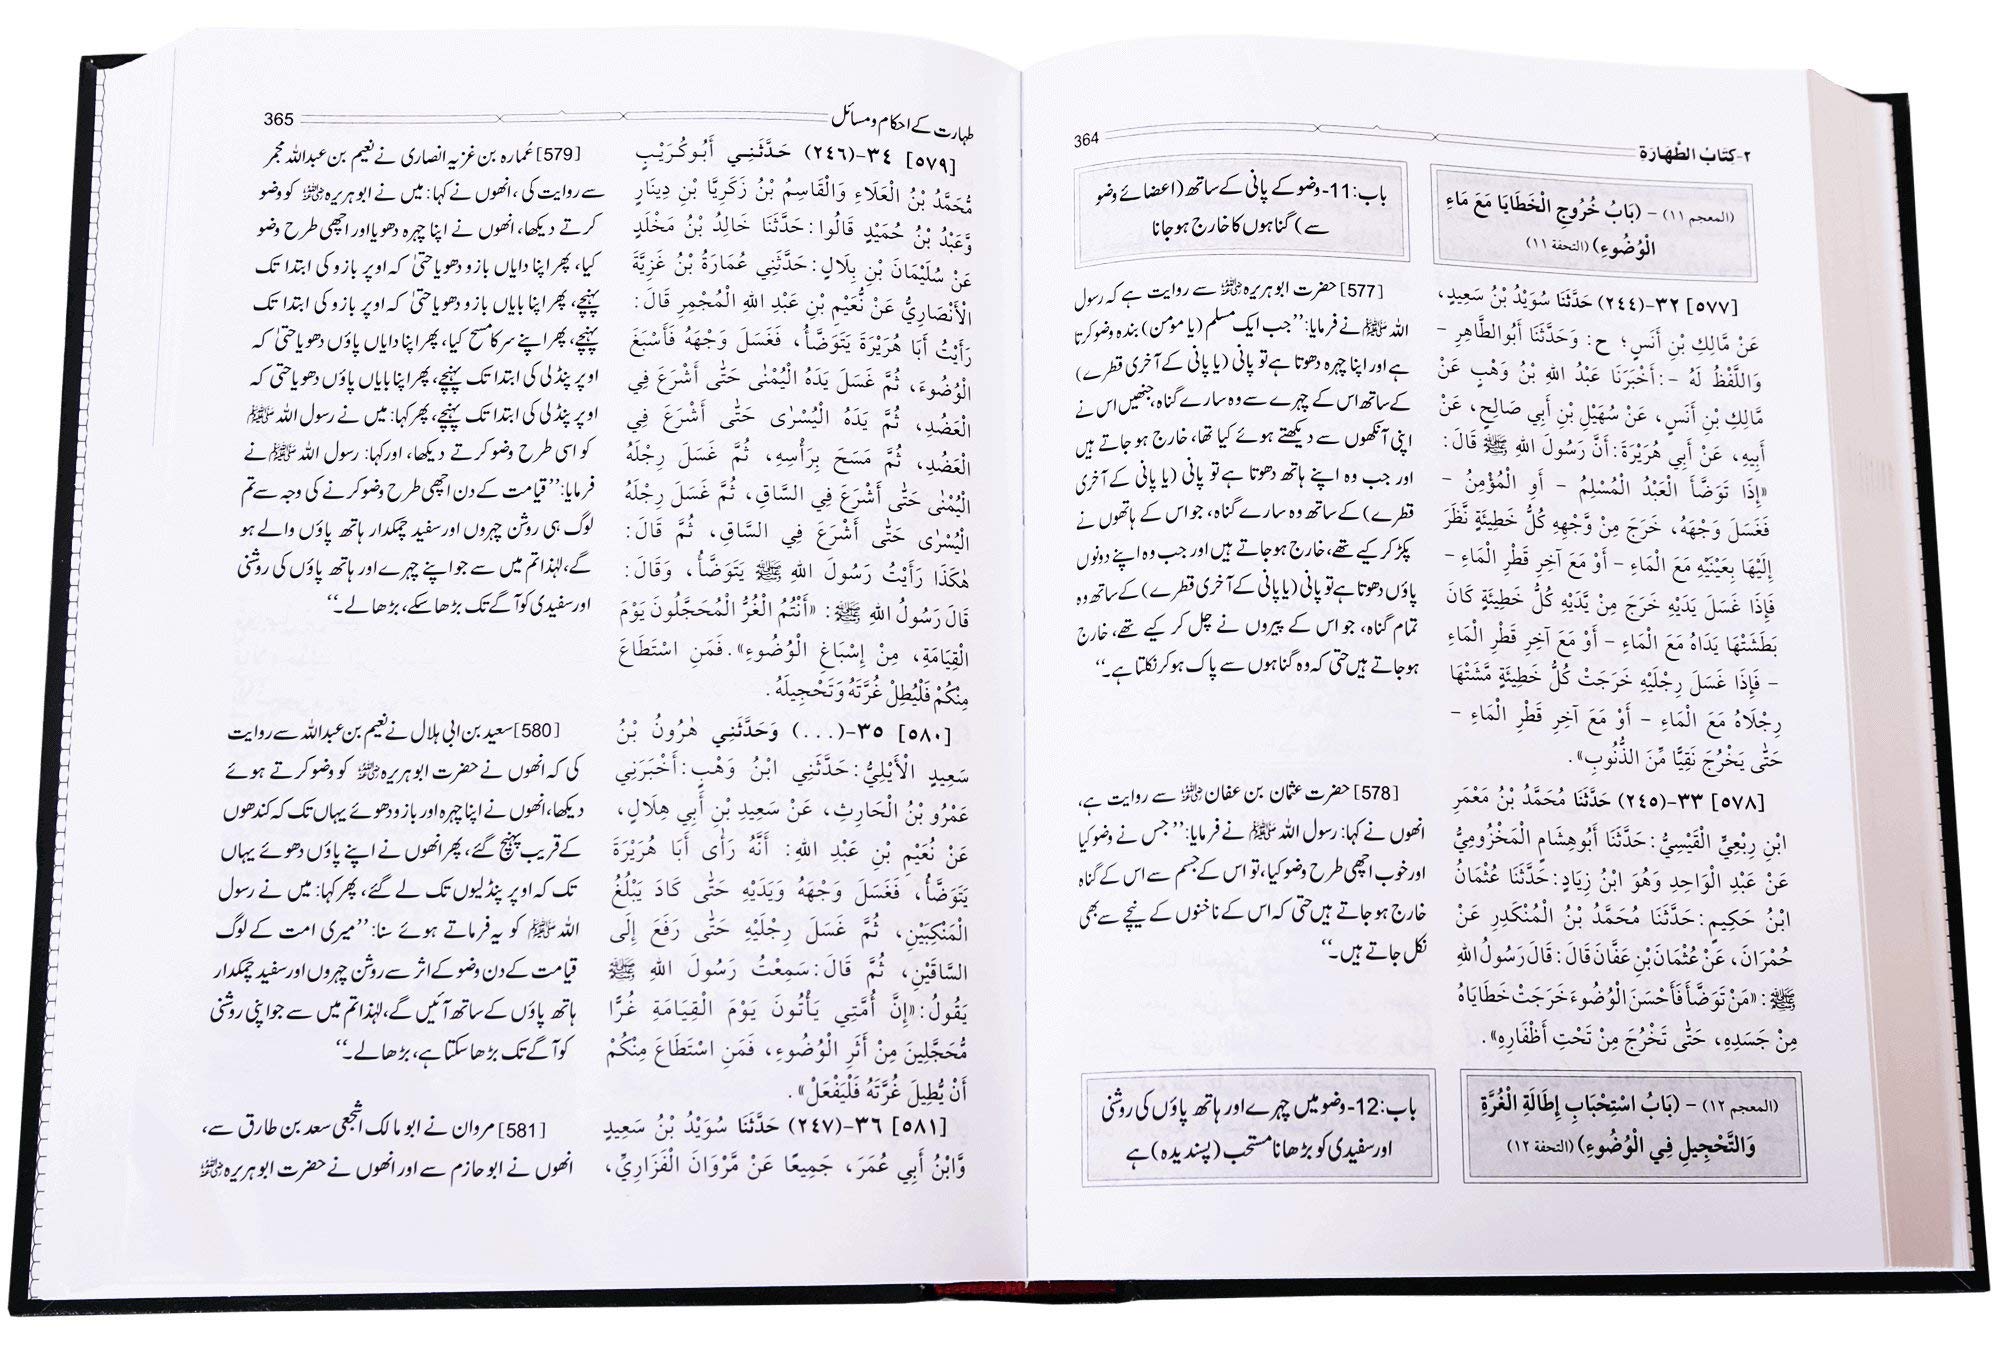 364
٢-كِتَابُ الطَّهَارَةِ
(المعجم ١١) - (بَابُ خُرُوجِ الْخَطَايَا مَعَ مَاءِ
الْوُضُوءِ) (التحفة ١١)
[٥٧٧] ٣٢-(٢٤٤) حَدَّثَنَا سُوَيْدُ بْنُ سَعِيدٍ،
عَنْ مَّالِكِ بْنِ أَنَسٍ؛ ح: وَحَدَّثَنَا أَبُوالطَّاهِرِ -
وَاللَّفْظُ لَهُ -: أَخْبَرَنَا عَبْدُ اللهِ بْنُ وَهْبٍ عَنْ
مَّالِكِ بْنِ أَنَسٍ، عَنْ سُهَيْلِ بْنِ أَبِي صَالِحٍ، عَنْ
أَبِيهِ، عَنْ أَبِي هُرَيْرَةَ: أَنَّ رَسُولَ اللهِ ﷺ قَالَ:
«إِذَا تَوَضَّأَ الْعَبْدُ الْمُسْلِمُ - أَوِ الْمُؤْمِنُ -
فَغَسَلَ وَجْهَهُ، خَرَجَ مِنْ وَّجْهِهِ كُلُّ خَطِيئَةٍ نَّظَرَ
إِلَيْهَا بِعَيْنَيْهِ مَعَ الْمَاءِ - أَوْ مَعَ آخِرِ قَطْرِ الْمَاءِ -
فَإِذَا غَسَلَ يَدَيْهِ خَرَجَ مِنْ يَّدَيْهِ كُلُّ خَطِيئَةٍ كَانَ
بَطَشَتْهَا يَدَاهُ مَعَ الْمَاءِ - أَوْ مَعَ آخِرِ قَطْرِ الْمَاءِ
- فَإِذَا غَسَلَ رِجْلَيْهِ خَرَجَتْ كُلُّ خَطِيئَةٍ مَّشَتْهَا
رِجْلَاهُ مَعَ الْمَاءِ - أَوْ مَعَ آخِرِ قَطْرِ الْمَاءِ -
حَتَّى يَخْرُجَ نَقِيًّا مِّنَ الذُّنُوبِ».
[٥٧٨] ٣٣-(٢٤٥) حَدَّثَنَا مُحَمَّدُ بْنُ مَعْمَرِ
ابْنِ رِبْعِيٍّ الْقَيْسِيُّ: حَدَّثَنَا أَبُوهِشَامٍ الْمَخْزُومِيُّ
عَنْ عَبْدِ الْوَاحِدِ وَهُوَ ابْنُ زِيَادٍ: حَدَّثَنَا عُثْمَانُ
ابْنُ حَكِيمٍ: حَدَّثَنَا مُحَمَّدُ بْنُ الْمُنْكَدِرِ عَنْ
حُمْرَانَ، عَنْ عُثْمَانَ بْنِ عَفَّانَ قَالَ: قَالَ رَسُولُ اللهِ
ﷺ: «مَنْ تَوَضَّأَ فَأَحْسَنَ الْوُضُوءَ خَرَجَتْ خَطَايَاهُ
مِنْ جَسَدِهِ، حَتَّى تَخْرُجَ مِنْ تَحْتِ أَظْفَارِهِ».
(المعجم ١٢) - (بَابُ اسْتِحْبَابِ إِطَالَةِ الْغُرَّةِ
وَالتَّحْجِيلِ فِي الْوُضُوءِ) (التحفة ١٢)
باب: 11- وضو کے پانی کے ساتھ (اعضائے وضو
سے) گناہوں کا خارج ہو جانا
[577] حضرت ابو ہریرہ رضی اللہ عنہ سے روایت ہے کہ رسول
اللہ ﷺ نے فرمایا: ’’جب ایک مسلم (یا مومن) بندہ وضو کرتا
ہے اور اپنا چہرہ دھوتا ہے تو پانی (یا پانی کے آخری قطرے)
کے ساتھ اس کے چہرے سے وہ سارے گناہ، جنھیں اس نے
اپنی آنکھوں سے دیکھتے ہوئے کیا تھا، خارج ہو جاتے ہیں
اور جب وہ اپنے ہاتھ دھوتا ہے تو پانی (یا پانی کے آخری
قطرے) کے ساتھ وہ سارے گناہ، جو اس کے ہاتھوں نے
پکڑ کر کیے تھے، خارج ہو جاتے ہیں اور جب وہ اپنے دونوں
پاؤں دھوتا ہے تو پانی (یا پانی کے آخری قطرے) کے ساتھ وہ
تمام گناہ، جو اس کے پیروں نے چل کر کیے تھے، خارج
ہو جاتے ہیں حتی کہ وہ گناہوں سے پاک ہو کر نکلتا ہے۔‘‘
[578] حضرت عثمان بن عفان رضی اللہ عنہ سے روایت ہے،
انھوں نے کہا: رسول اللہ ﷺ نے فرمایا: ’’جس نے وضو کیا
اور خوب اچھی طرح وضو کیا، تو اس کے جسم سے اس کے گناہ
خارج ہو جاتے ہیں حتی کہ اس کے ناخنوں کے نیچے سے بھی
نکل جاتے ہیں۔‘‘
باب: 12- وضو میں چہرے اور ہاتھ پاؤں کی روشنی
اور سفیدی کو بڑھانا مستحب (پسندیدہ) ہے
طہارت کے احکام و مسائل
365
[٥٧٩] ٣٤-(٢٤٦) حَدَّثَنِي أَبُوكُرَيْبٍ
مُّحَمَّدُ بْنُ الْعَلَاءِ وَالْقَاسِمُ بْنُ زَكَرِيَّا بْنِ دِينَارٍ
وَّعَبْدُ بْنُ حُمَيْدٍ قَالُوا: حَدَّثَنَا خَالِدُ بْنُ مَخْلَدٍ
عَنْ سُلَيْمَانَ بْنِ بِلَالٍ: حَدَّثَنِي عُمَارَةُ بْنُ غَزِيَّةَ
الْأَنْصَارِيُّ عَنْ نُّعَيْمِ بْنِ عَبْدِ اللهِ الْمُجْمِرِ قَالَ:
رَأَيْتُ أَبَا هُرَيْرَةَ يَتَوَضَّأُ، فَغَسَلَ وَجْهَهُ فَأَسْبَغَ
الْوُضُوءَ، ثُمَّ غَسَلَ يَدَهُ الْيُمْنٰى حَتَّى أَشْرَعَ فِي
الْعَضُدِ، ثُمَّ يَدَهُ الْيُسْرٰى حَتَّى أَشْرَعَ فِي
الْعَضُدِ، ثُمَّ مَسَحَ بِرَأْسِهِ، ثُمَّ غَسَلَ رِجْلَهُ
الْيُمْنٰى حَتَّى أَشْرَعَ فِي السَّاقِ، ثُمَّ غَسَلَ رِجْلَهُ
الْيُسْرٰى حَتَّى أَشْرَعَ فِي السَّاقِ، ثُمَّ قَالَ:
هٰكَذَا رَأَيْتُ رَسُولَ اللهِ ﷺ يَتَوَضَّأُ، وَقَالَ:
قَالَ رَسُولُ اللهِ ﷺ: «أَنْتُمُ الْغُرُّ الْمُحَجَّلُونَ يَوْمَ
الْقِيَامَةِ، مِنْ إِسْبَاغِ الْوُضُوءِ». فَمَنِ اسْتَطَاعَ
مِنْكُمْ فَلْيُطِلْ غُرَّتَهُ وَتَحْجِيلَهُ.
[٥٨٠] ٣٥-(...) وَحَدَّثَنِي هٰرُونُ بْنُ
سَعِيدٍ الْأَيْلِيُّ: حَدَّثَنِي ابْنُ وَهْبٍ: أَخْبَرَنِي
عَمْرُو بْنُ الْحَارِثِ، عَنْ سَعِيدِ بْنِ أَبِي هِلَالٍ،
عَنْ نُعَيْمِ بْنِ عَبْدِ اللهِ: أَنَّهُ رَأَى أَبَا هُرَيْرَةَ
يَتَوَضَّأُ، فَغَسَلَ وَجْهَهُ وَيَدَيْهِ حَتَّى كَادَ يَبْلُغُ
الْمَنْكِبَيْنِ، ثُمَّ غَسَلَ رِجْلَيْهِ حَتَّى رَفَعَ إِلَى
السَّاقَيْنِ، ثُمَّ قَالَ: سَمِعْتُ رَسُولَ اللهِ ﷺ
يَقُولُ: «إِنَّ أُمَّتِي يَأْتُونَ يَوْمَ الْقِيَامَةِ غُرًّا
مُّحَجَّلِينَ مِنْ أَثَرِ الْوُضُوءِ، فَمَنِ اسْتَطَاعَ مِنْكُمْ
أَنْ يُّطِيلَ غُرَّتَهُ فَلْيَفْعَلْ».
[٥٨١] ٣٦-(٢٤٧) حَدَّثَنَا سُوَيْدُ بْنُ سَعِيدٍ
وَّابْنُ أَبِي عُمَرَ، جَمِيعًا عَنْ مَّرْوَانَ الْفَزَارِيِّ،
[579] عُمارہ بن غزیہ انصاری نے نعیم بن عبداللہ مجمر
سے روایت کی، انھوں نے کہا: میں نے ابو ہریرہ رضی اللہ عنہ کو وضو
کرتے دیکھا، انھوں نے اپنا چہرہ دھویا اور اچھی طرح وضو
کیا، پھر اپنا دایاں بازو دھویا حتیٰ کہ اوپر بازو کی ابتدا تک
پہنچے، پھر اپنا بایاں بازو دھویا حتیٰ کہ اوپر بازو کی ابتدا تک
پہنچے، پھر اپنے سر کا مسح کیا، پھر اپنا دایاں پاؤں دھویا حتیٰ کہ
اوپر پنڈلی کی ابتدا تک پہنچے، پھر اپنا بایاں پاؤں دھویا حتیٰ کہ
اوپر پنڈلی کی ابتدا تک پہنچے، پھر کہا: میں نے رسول اللہ ﷺ
کو اسی طرح وضو کرتے دیکھا، اور کہا: رسول اللہ ﷺ نے
فرمایا: ’’قیامت کے دن اچھی طرح وضو کرنے کی وجہ سے تم
لوگ ہی روشن چہروں اور سفید چمکدار ہاتھ پاؤں والے ہو
گے، لہٰذا تم میں سے جو اپنے چہرے اور ہاتھ پاؤں کی روشنی
اور سفیدی کو آگے تک بڑھا سکے، بڑھا لے۔‘‘
[580] سعید بن ابی ہلال نے نعیم بن عبداللہ سے روایت
کی کہ انھوں نے حضرت ابو ہریرہ رضی اللہ عنہ کو وضو کرتے ہوئے
دیکھا، انھوں نے اپنا چہرہ اور بازو دھوئے یہاں تک کہ کندھوں
کے قریب پہنچ گئے، پھر انھوں نے اپنے پاؤں دھوئے یہاں
تک کہ اوپر پنڈلیوں تک لے گئے، پھر کہا: میں نے رسول
اللہ ﷺ کو یہ فرماتے ہوئے سنا: ’’میری امت کے لوگ
قیامت کے دن وضو کے اثر سے روشن چہروں اور سفید چمکدار
ہاتھ پاؤں کے ساتھ آئیں گے، لہٰذا تم میں سے جو اپنی روشنی
کو آگے تک بڑھا سکتا ہے، بڑھا لے۔‘‘
[581] مروان نے ابو مالک اشجعی سعد بن طارق سے،
انھوں نے ابو حازم سے اور انھوں نے حضرت ابو ہریرہ رضی اللہ عنہ